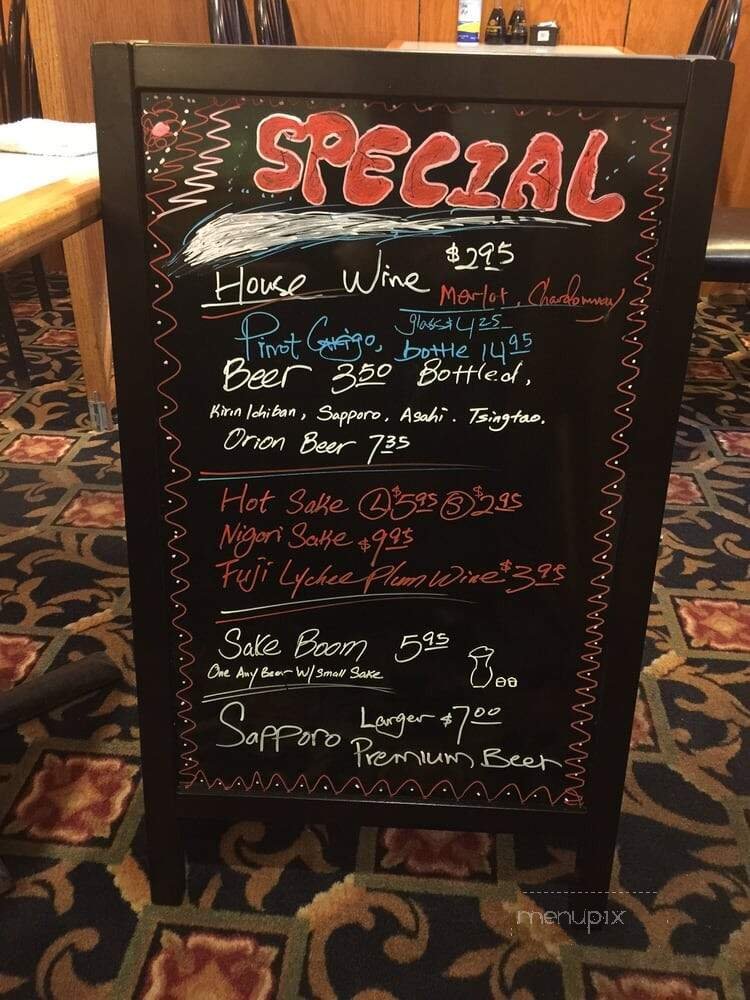 SPECIAL
House Wine $2.95
Merlot, Chardonnay
Pinot Grigo, glass $4.25 bottle 14.95
Beer 3.50 Bottled,
Kirin Ichiban, Sapporo, Asahi. Tsingtao.
Orion Beer 7.35
Hot Sake Ⓛ $5.95 Ⓢ $2.95
Nigori Sake $9.95
Fuji Lychee Plum Wine $3.95
Sake Boom 5.95
One Any Beer W/ Small Sake
Sapporo Larger $7.00
Premium Beer
menupix